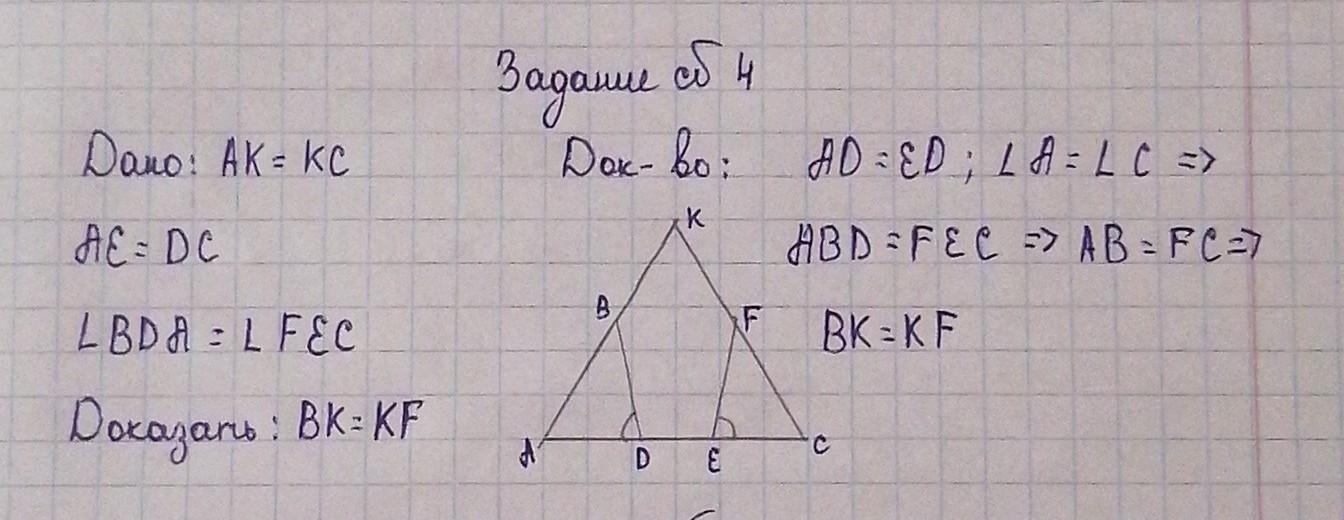 Задание сб 4
Дано: AK = KC
AE = DC
∠BDA = ∠FEC
Доказать: BK = KF
Док-во: AD = ED; ∠A = ∠C =>
ABD = FEC => AB = FC =>
BK = KF
K
B
F
A
D
E
C